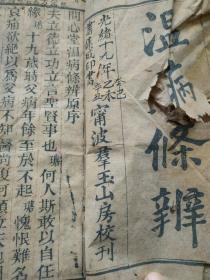 溫病條辨
光緒十九年
癸巳
乙未
甯波羣玉山房校刊
問心堂溫病條辨原序
夫立德立功立言聖賢事也瑭何人斯敢以自任
緣瑭十九歲時父病年餘至於不起瑭愧恨難名
哀痛欲絕以爲父病不知醫尚復何顏立天地